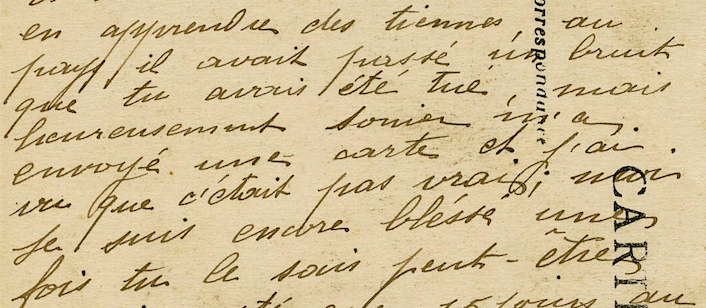 en apprendre des tiennes, au
pays il avait passé un bruit
que tu avais été tué, mais
heureusement sonier m'a
envoyé une carte et j'ai
vu que c'était pas vrai, moi
je suis encore bléssé une
fois tu le sais peut-être
que 15 jours au
Correspondance
CART